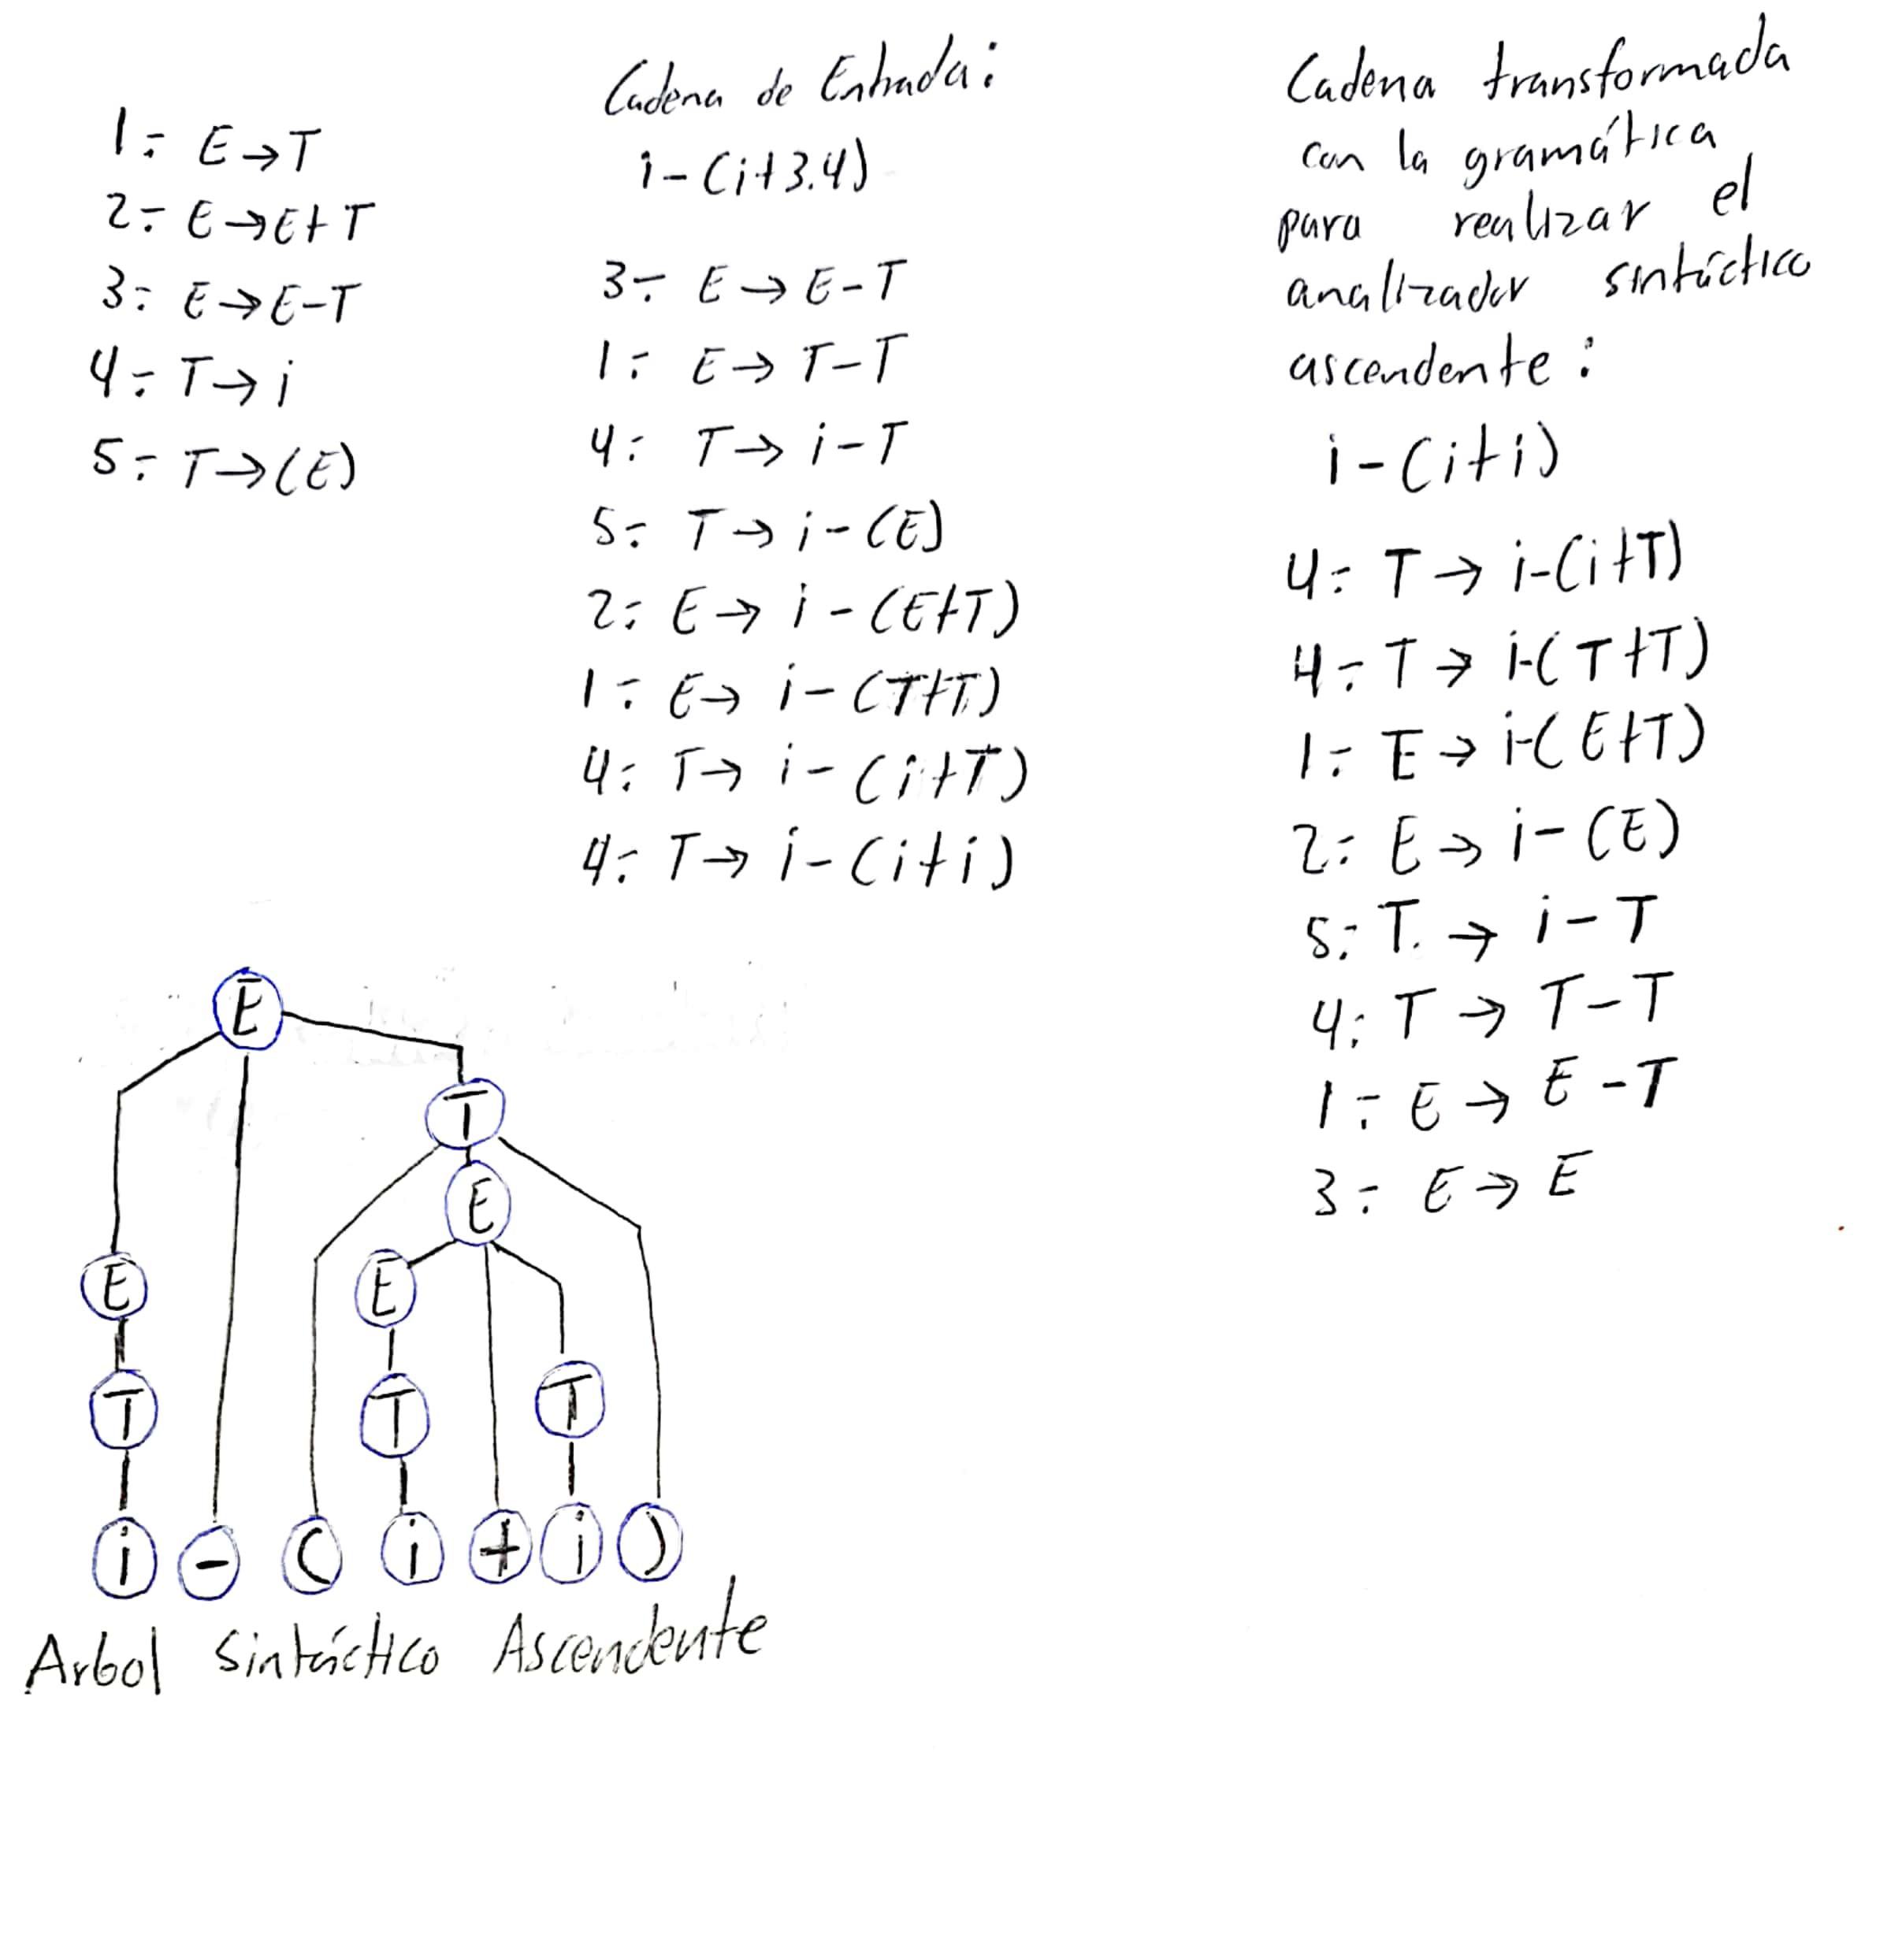 1:- E→T
2:- E→E+T
3:- E→E-T
4:- T→i
5:- T→(E)
Cadena de Entrada:
i-(i+3.4)
3:- E→E-T
1:- E→T-T
4:- T→i-T
5:- T→i-(E)
2:- E→i-(E+T)
1:- E→i-(T+T)
4:- T→i-(i+T)
4:- T→i-(i+i)
Cadena transformada
con la gramática
para realizar el
analizador sintáctico
ascendente:
i-(i+i)
4:- T→i-(i+T)
4:- T→i-(T+T)
1:- E→i-(E+T)
2:- E→i-(E)
5:- T.→i-T
4:- T→T-T
1:- E→E-T
3:- E→E
E
T
E
E E
T T T
i - ( i + i )
Arbol Sintáctico Ascendente